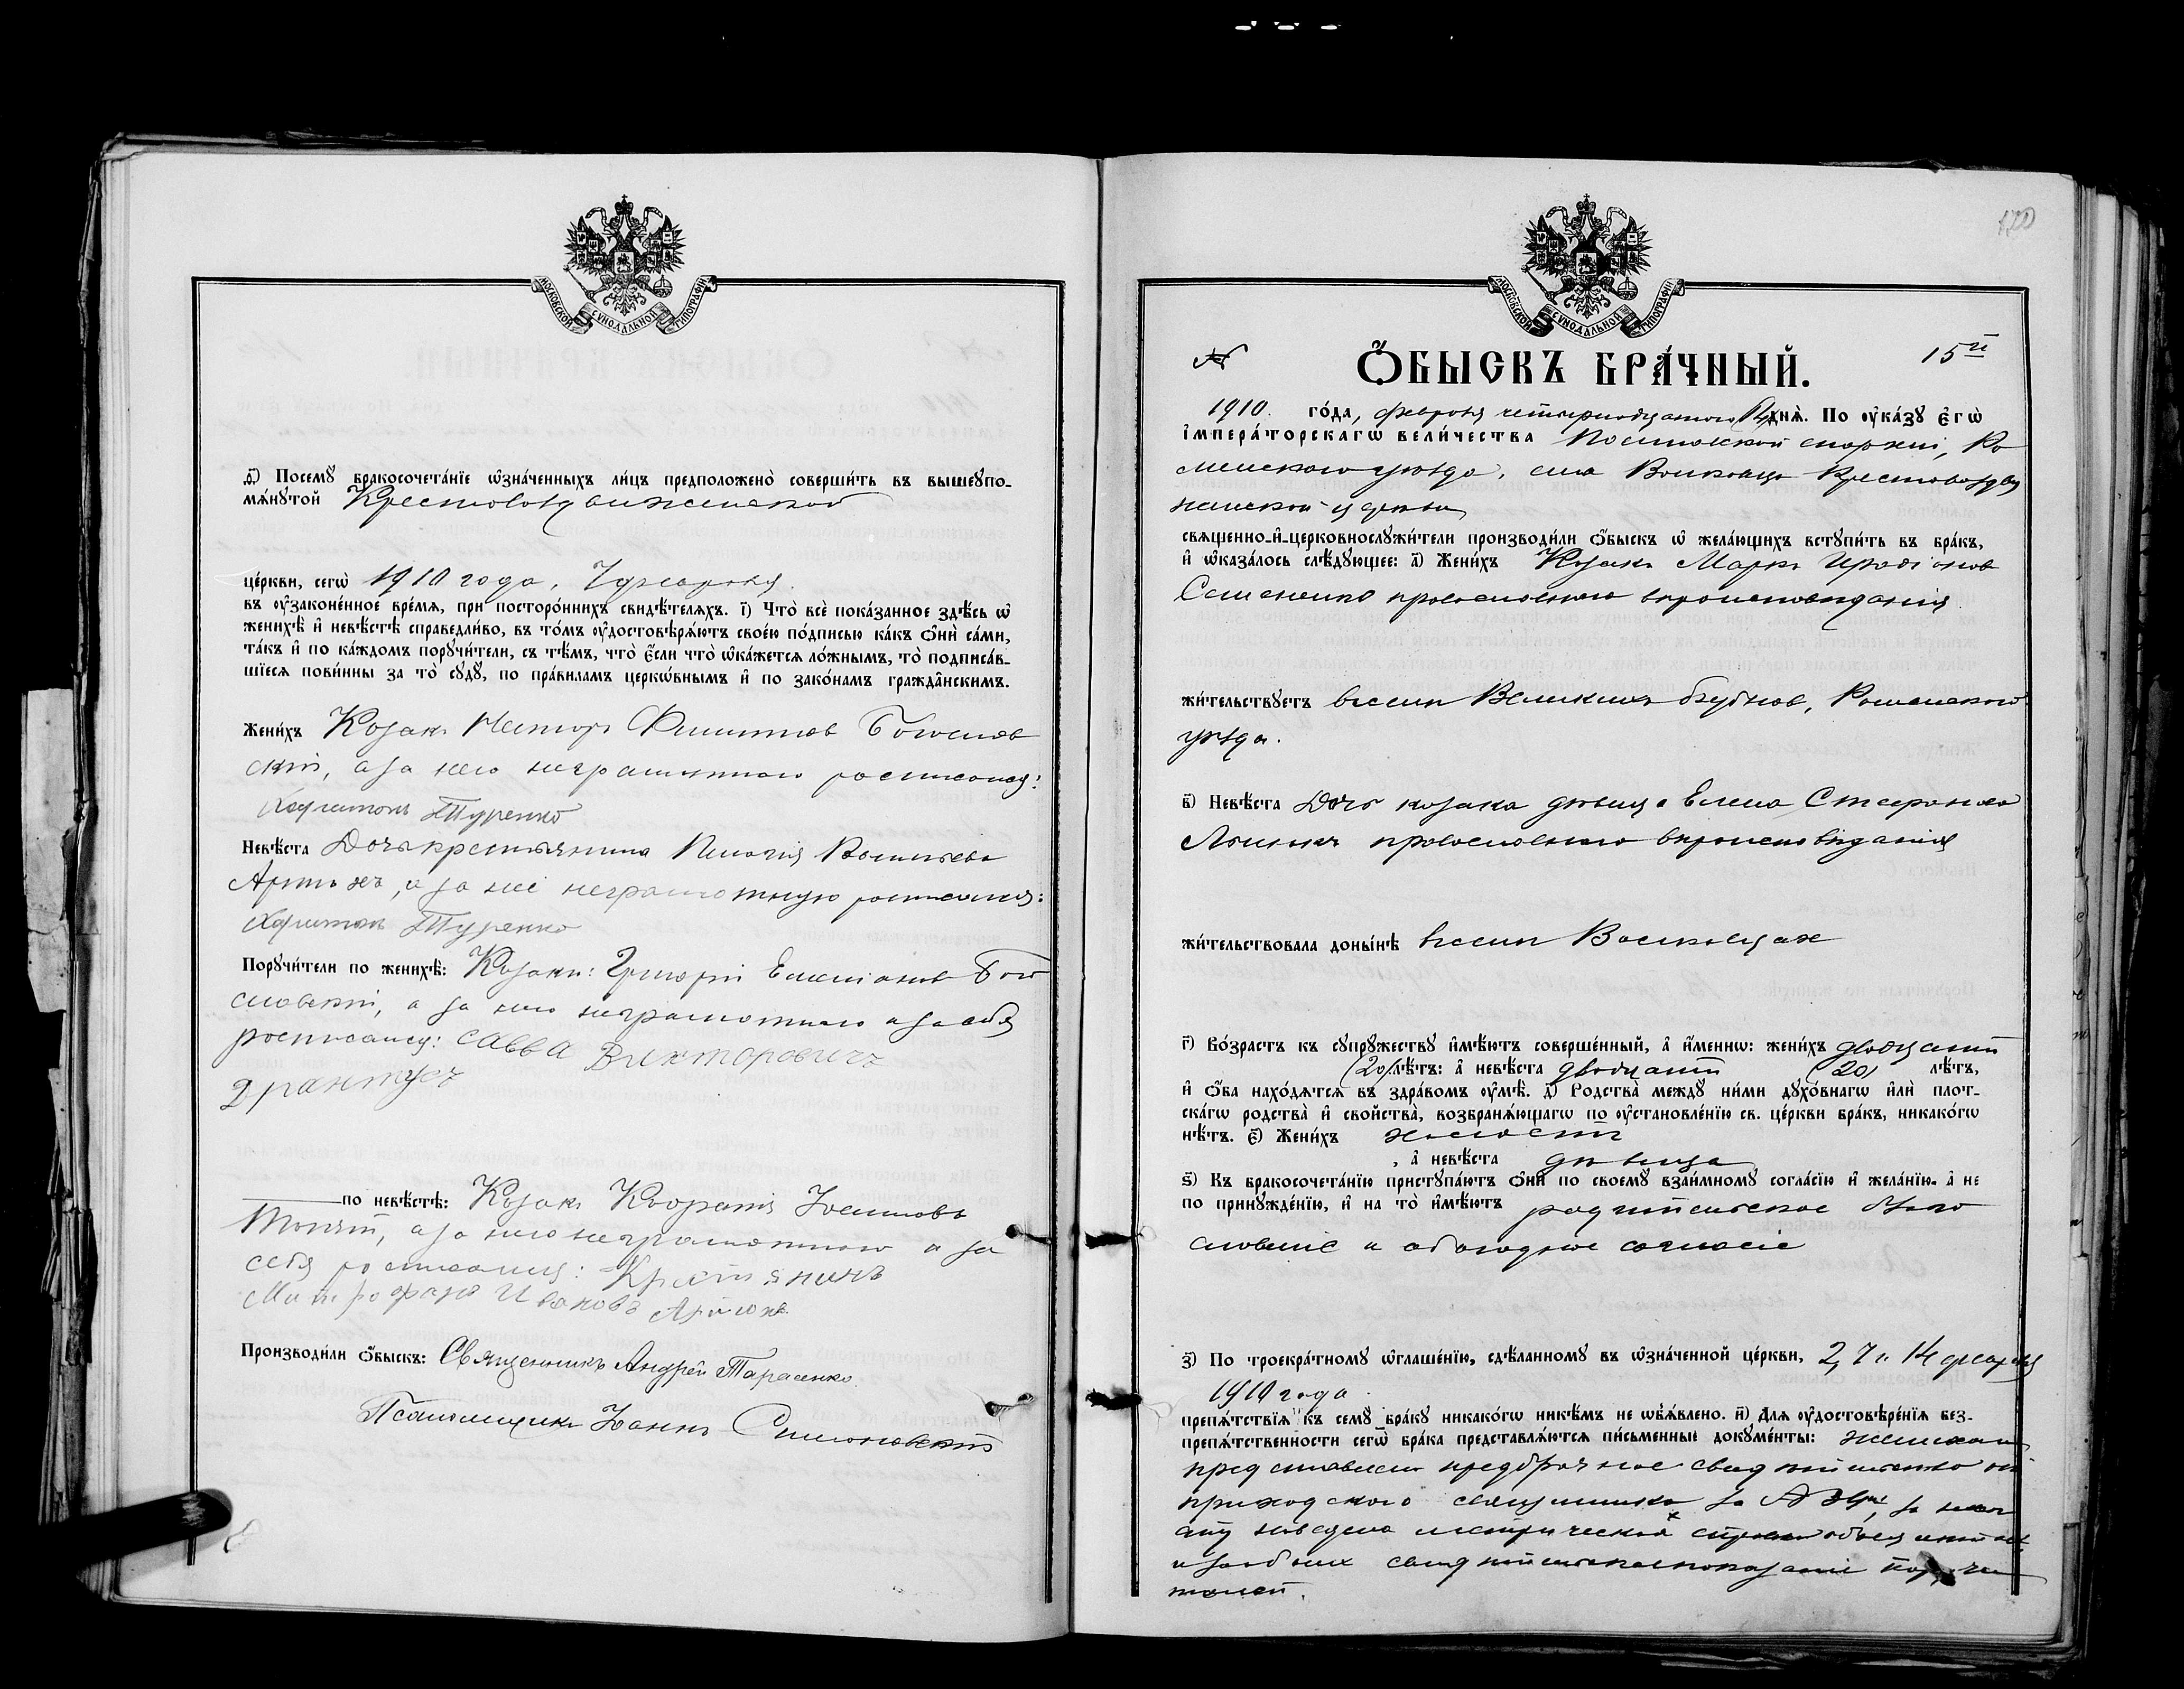 МОСКОВСКОЙ СѴНОДАЛЬНОЙ ТИПОГРАФІИ
д҃) Посемꙋ бракосочета́нїе ѡ҆зна́ченныхъ ли́цъ предположено̀ соверши́ть въ вышеꙋпо-
мѧ́нꙋтой Крестовоздвиженской
це́ркви, сегѡ̀ 1910 года, 7 февраля
въ ᲂу҆законе́нное вре́мѧ, при посторо́ннихъ свидѣ́телѧхъ. і҃) Что̀ всѐ пока́занное здѣ́сь ѡ҆
женихѣ̀ и҆ невѣ́стѣ справедли́во, въ то́мъ ᲂу҆достовѣрѧ́ютъ свое́ю по́дписью ка́къ ѻ҆нѝ са́ми,
та́къ и҆ по ка́ждомъ порꙋчи́тели, съ тѣ́мъ, что̀ є҆́сли что̀ ѡ҆ка́жетсѧ ло́жнымъ, то̀ подписа́в-
шїесѧ пови́нны за то̀ сꙋдꙋ̀, по пра́виламъ церкѡ́внымъ и҆ по зако́намъ гражда̑нскимъ.
Жени́хъ Козакъ Нестор Филиппов Богослов
скій, а за него неграмотнаго росписался:
Харитонъ Туренко
Невѣ́ста Дочь крестьянина Пелагія Васильева
Артюхъ, а за неё неграмотную росписался:
Харитонъ Туренко
Порꙋчи́тели по женихѣ̀: Козаки: Григорій Емеліанов Бого
словскій, а за него неграмотнаго и за себя
росписался: Савва Викторовичъ
по невѣ́стѣ: Козакъ
а за него неграмотнаго и за
себя росписался: Крестянинъ
Митрофанъ Ивановъ Артюхъ
Производи́ли ѻ҆́быскъ: Священникъ Андрей Тарасенко.
Псаломщикъ Іоаннъ
МОСКОВСКОЙ СѴНОДАЛЬНОЙ ТИПОГРАФІИ
120
№
15й
Ѻ҆БЫСКЪ БРА́ЧНЫЙ.
1910. го́да, февраля четырнадцатаго (14) днѧ̀. По ᲂу҆ка́зꙋ є҆гѡ̀
і҆мпера́торскагѡ вели́чества Полтавской епархіи, Ро
менскаго уѣзда, села Волковцы Крестовоздви
женской церкви
свѧщенно-и҆-церковнослꙋжи́тели производи́ли ѻ҆́быскъ ѡ҆ жела́ющихъ встꙋпи́ть въ бра́къ,
и҆ ѡ҆каза́лось слѣ́дꙋющее: а҃) Жени́хъ Козакъ Маркъ Иродіонов
Семененко православнаго вѣроисповѣданія.
жи́тельствꙋетъ в селѣ Великихъ Бубнов, Роменскаго
уѣзда.
в҃) Невѣ́ста Дочь козака дѣвица Елена Стефанова
православнаго вѣроисповѣданія
жи́тельствовала доны́нѣ в селѣ Волковцах
г҃) Во́зрастъ къ сꙋпрꙋ́жествꙋ и҆мѣ́ютъ соверше́нный, а҆ и҆́меннѡ: жени́хъ двадцати
(20) лѣ́тъ: а҆ невѣ́ста двадцати (20) лѣ́тъ,
и҆ ѻ҆́ба нахо́дѧтсѧ въ здра́вомъ ᲂу҆мѣ̀. д҃) Родства̀ междꙋ̀ ни́ми дꙋхо́внагѡ и҆лѝ плот-
ска́гѡ родства̀ и҆ свойства̀, возбранѧ́ющагѡ по ᲂу҆становле́нїю св. це́ркви бра́къ, никако́гѡ
нѣ́тъ. є҃) Жени́хъ холостъ
, а҆ невѣ́ста дѣвица
ѕ҃) Къ бракосочета́нїю пристꙋпа́ютъ ѻ҆нѝ по своемꙋ̀ взаи́мномꙋ согла́сїю и҆ жела́нїю, а҆ не
по принꙋжде́нїю, и҆ на то̀ и҆мѣ́ютъ родительское благо
словеніе и обоюдное согласіе
з҃) По троекра́тномꙋ ѡ҆глаше́нїю, сдѣ́ланномꙋ въ ѡ҆зна́ченной це́ркви, 2, 7 и 14 февраля
1910 года.
препѧ́тствїѧ къ семꙋ̀ бра́кꙋ никако́гѡ никѣ́мъ не ѡ҆б̾ѧ́влено. и҃) Для ᲂу҆достовѣре́нїѧ без-
препѧ́тственности сегѡ̀ бра́ка представлѧ́ютсѧ пи́сьменные докꙋме́нты: женихомъ
представлено предбрачное свидѣтельство от
приходского священника за №
наведена метрическая
и за обоих свидѣтельское показаніе поручи
телей.